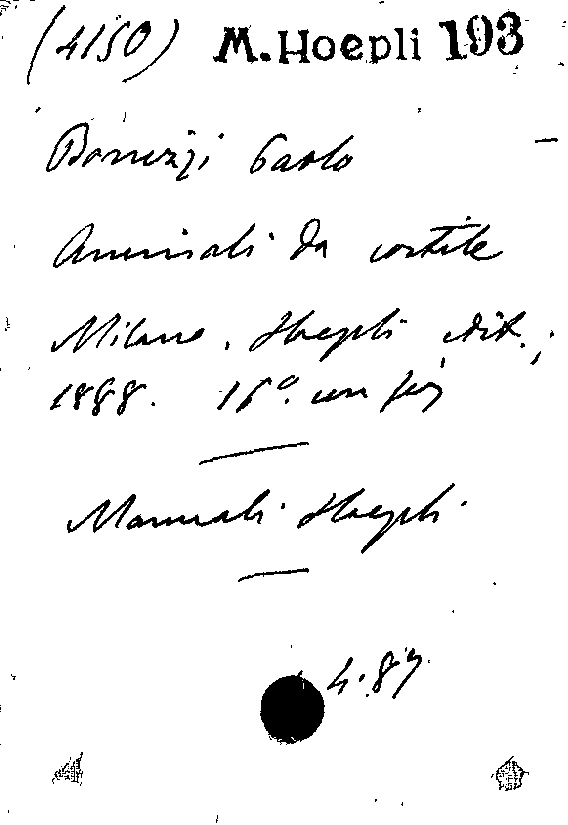 (4150) M. Hoepli 193
Bonizzi Paolo
Animali da cortile
Milano, Hoepli edit.,
1888. 16°. con fig
Manuali Hoepli
4.87